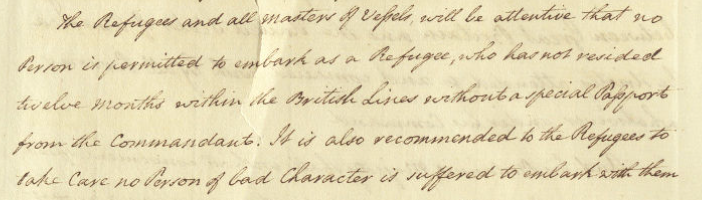 The Refugees and all Masters of Vessels, will be attentive that no
Person is permitted to embark as a Refugee, who has not resided
twelve Months within the British Lines without a special Passport
from the Commandant. It is also recommended to the Refugees to
take Care no Person of bad Character is suffered to embark with them